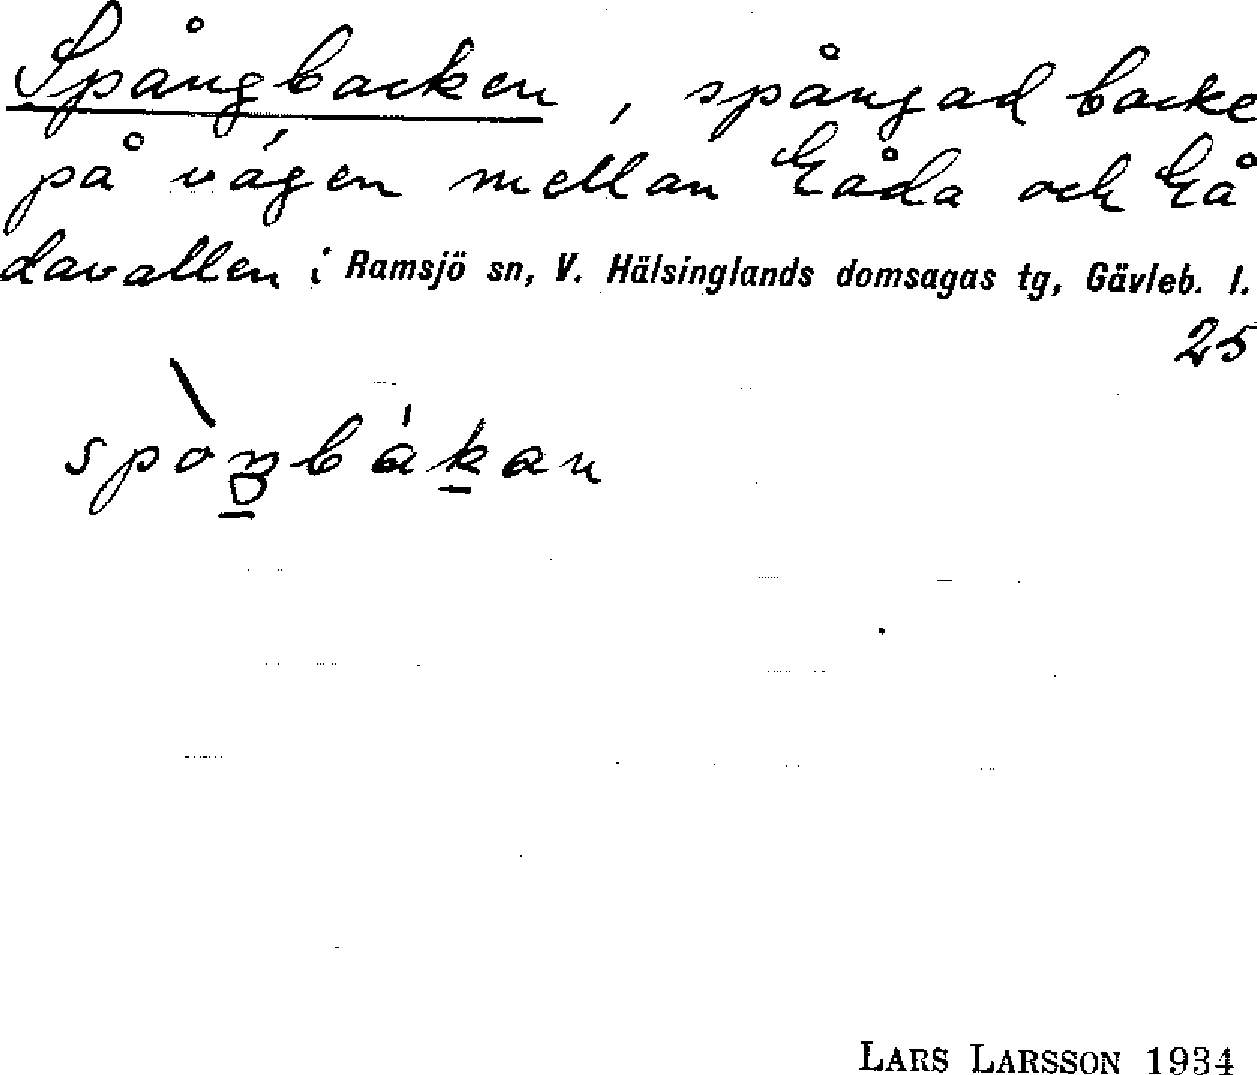 Spångbacken, spångad backe
på vägen mellan Gåda och Gå
davallen i Ramsjö sn, V. Hälsinglands domsagas tg, Gävleb. l.
25
LARS LARSSON 1934